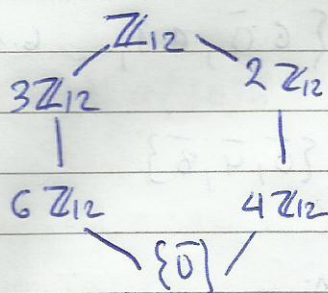 ℤ₁₂
3ℤ₁₂ 2ℤ₁₂
6ℤ₁₂ 4ℤ₁₂
{0̄}